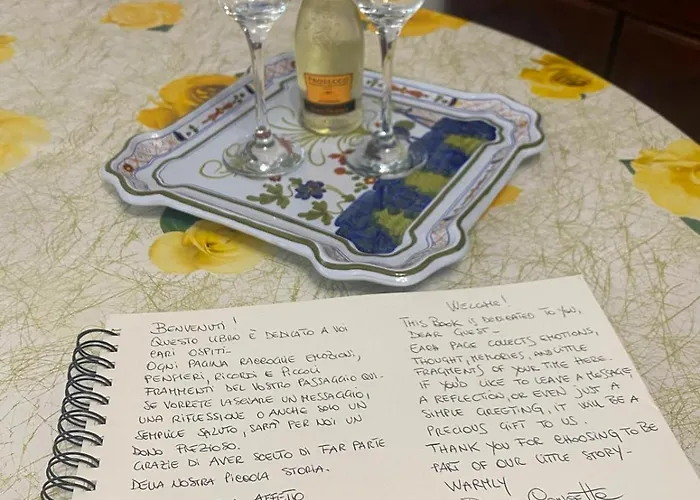 PROSECCO
BENVENUTI!
QUESTO LIBRO È DEDICATO A VOI
CARI OSPITI-
OGNI PAGINA RACCOGLIE EMOZIONI,
PENSIERI, RICORDI E PICCOLI
FRAMMENTI DEL VOSTRO PASSAGGIO QUI-
SE VORRETE LASCIARE UN MESSAGGIO,
UNA RIFLESSIONE O ANCHE SOLO UN
SEMPLICE SALUTO, SARÀ PER NOI UN
DONO PREZIOSO.
GRAZIE DI AVER SCELTO DI FAR PARTE
DELLA NOSTRA PICCOLA STORIA.
AFFETTO
WELCOME!
THIS BOOK IS DEDICATED TO YOU,
DEAR GUEST-
EACH PAGE COLLECTS EMOTIONS,
THOUGHT, MEMORIES, AND LITTLE
FRAGMENTS OF YOUR TIME HERE.
IF YOU'D LIKE TO LEAVE A MESSAGE
A REFLECTION, OR EVEN JUST A
SIMPLE GREETING, IT WILL BE A
PRECIOUS GIFT TO US.
THANK YOU FOR CHOOSING TO BE
PART OF OUR LITTLE STORY-
WARMLY